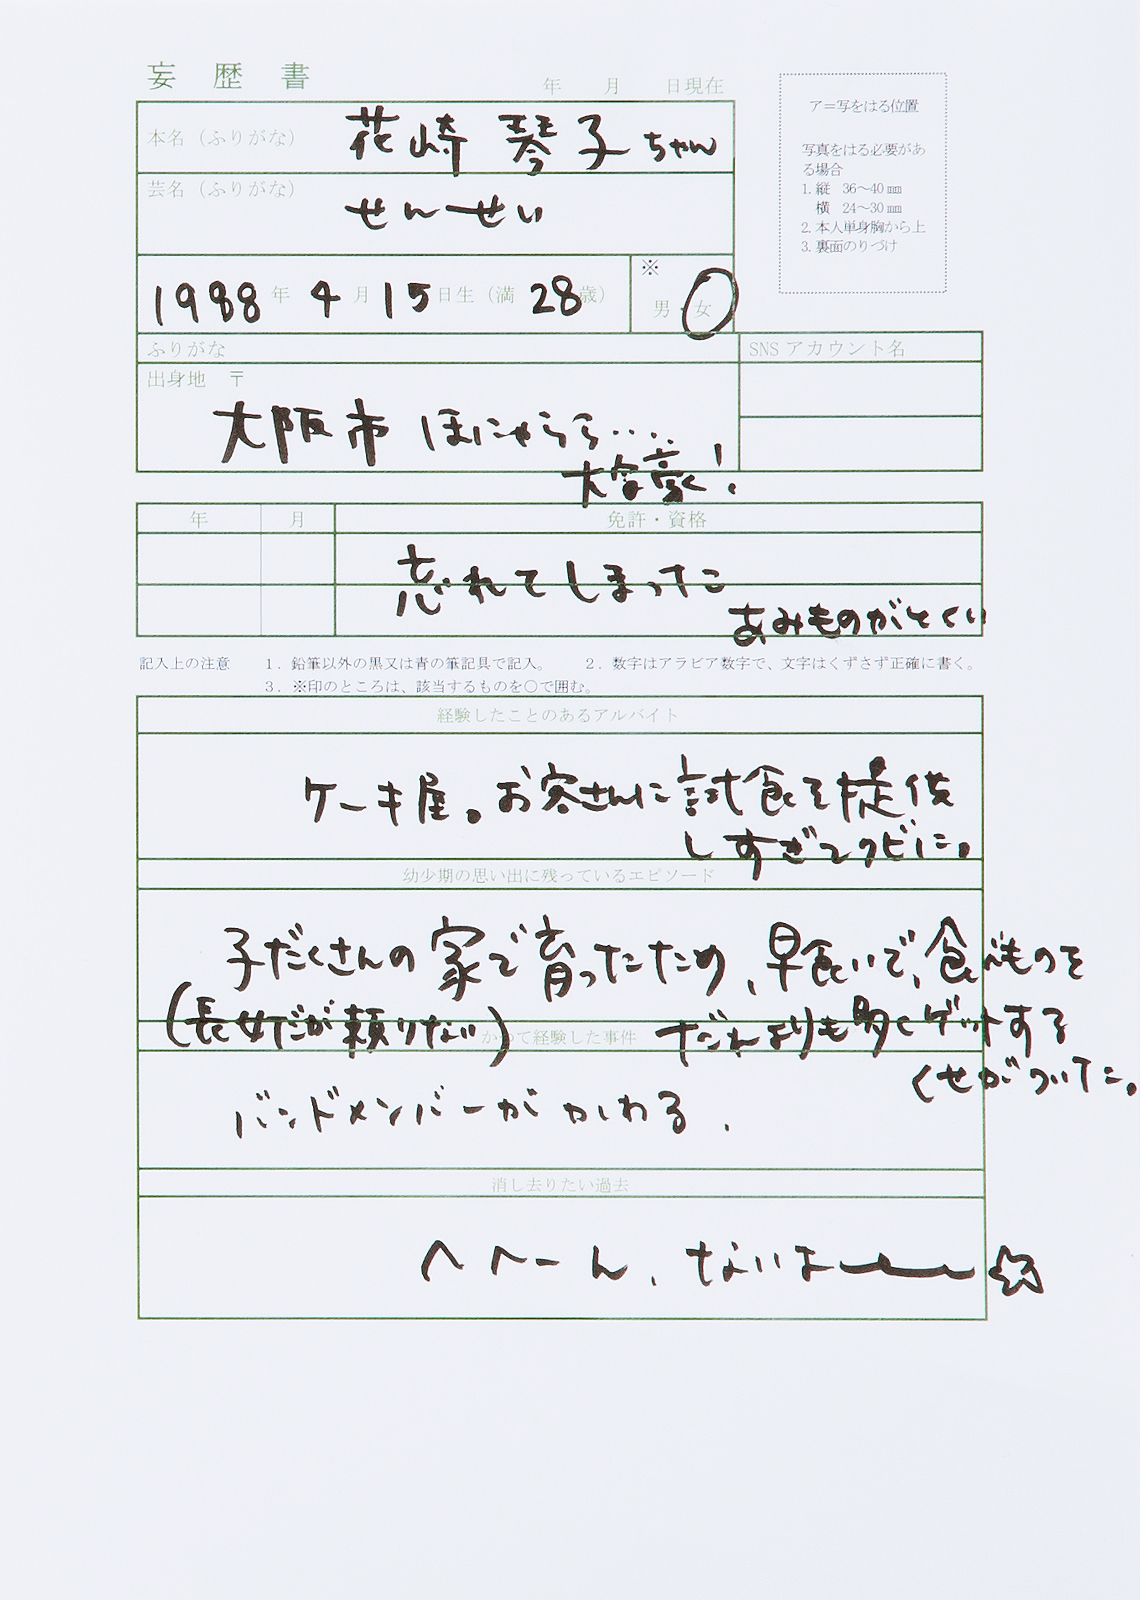 妄歴書
年 月 日現在
ア=写をはる位置
写真をはる必要があ
る場合
1. 縦 36～40㎜
横 24～30㎜
2. 本人単身胸から上
3. 裏面のりづけ
本名（ふりがな） 花崎 琴子ちゃん
芸名（ふりがな）
せんせい
1988年 4月 15日生（満 28歳）
※
男・女
ふりがな
SNS アカウント名
出身地 〒
大阪市 ほにゃらら....
大富豪!
年 月 免許・資格
忘れてしまった
あみものがとくい
記入上の注意 1. 鉛筆以外の黒又は青の筆記具で記入。 2. 数字はアラビア数字で、文字はくずさず正確に書く。
3. ※印のところは、該当するものを○で囲む。
経験したことのあるアルバイト
ケーキ屋。お客さんに試食を提供
しすぎてクビに。
幼少期の思い出に残っているエピソード
子だくさんの家で育ったため、早食いで、食べものを
だれよりも多くゲットする
くせがついてた。
(長女だが頼りない)
かつて経験した事件
バンドメンバーがかわる.
消し去りたい過去
へへーん、ないよー☆